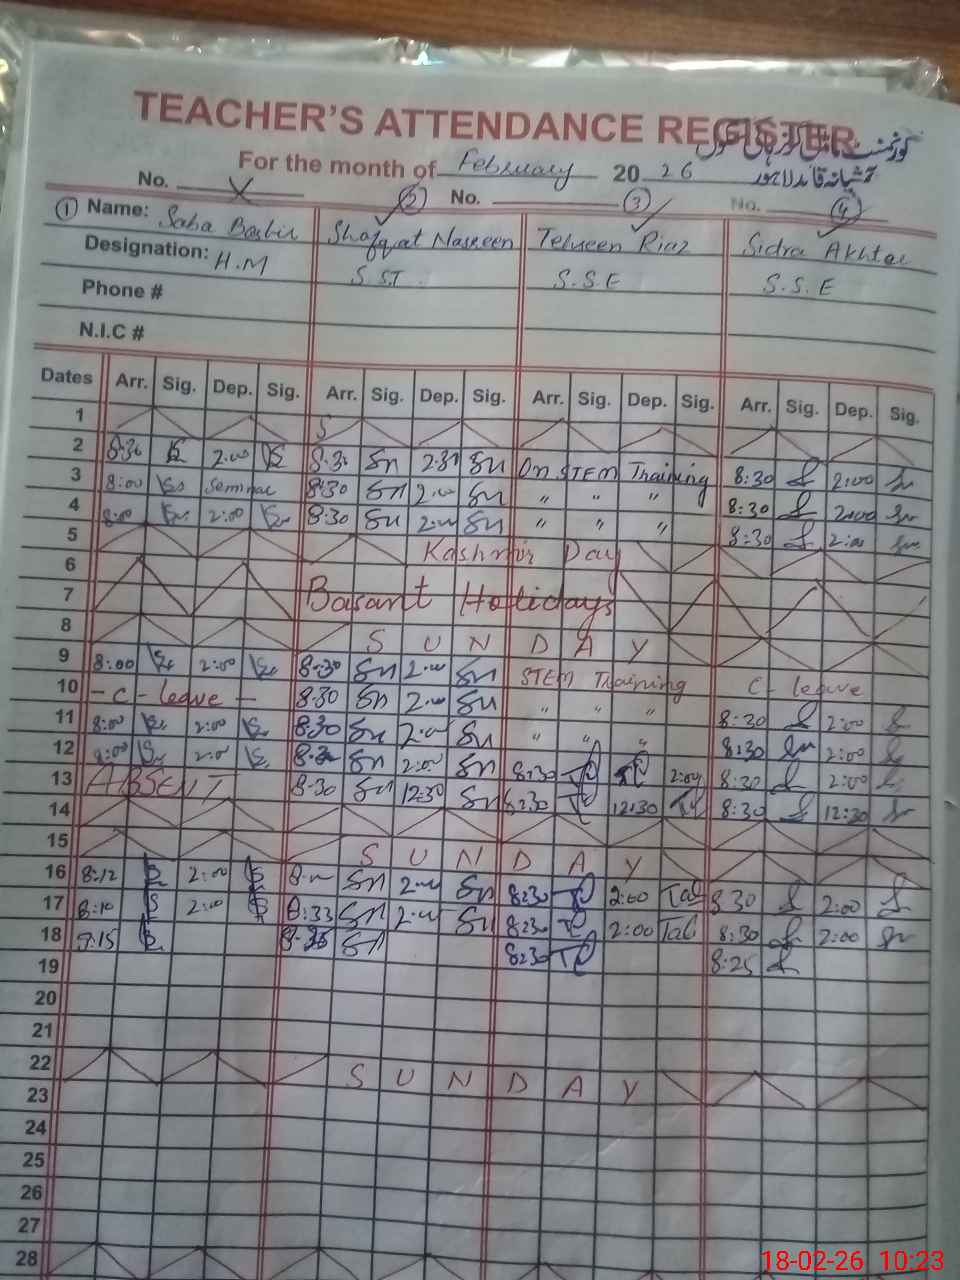 TEACHER'S ATTENDANCE REGISTER
For the month of February 2026
No. X No. No.
① Name: Saba Bashir ② Shafqat Nasreen ③ Tehseen Riaz ④ Sidra Akhtar
Designation: H.M S.ST. S.S.E S.S.E
Phone #
N.I.C #
Dates Arr. Sig. Dep. Sig. Arr. Sig. Dep. Sig. Arr. Sig. Dep. Sig. Arr. Sig. Dep. Sig.
1 S
2 8:30 2:00 8:30 Sn 2:30 Sn On STEM Training 8:30 2:00
3 8:00 Seminar 8:30 Sn 2:00 Sn " " " 8:30 2:00
4 8:00 2:00 8:30 Sn 2:00 Sn " " " 8:30 2:00
5 Kashmir Day
6
7 Basant Holidays
8 S U N D A Y
9 8:00 2:00 8:30 Sn 2:00 Sn STEM Training C - leave
10 - C - leave - 8:30 Sn 2:00 Sn " " " 8:30 2:00
11 8:00 2:00 8:30 Sn 2:00 Sn " " " 8:30 2:00
12 8:00 2:00 8:30 Sn 2:00 Sn 8:30 2:00 8:30 2:00
13 ABSENT 8:30 Sn 12:30 Sn 8:30 12:30 8:30 12:30
14
15 S U N D A Y
16 8:12 2:00 Sn 2:00 Sn 8:30 2:00 8:30 2:00
17 8:10 2:00 8:33 Sn 2:00 Sn 8:30 2:00 8:30 2:00
18 9:15 Sn 8:30 8:25
19
20
21
22 S U N D A Y
23
24
25
26
27
28
18-02-26 10:23